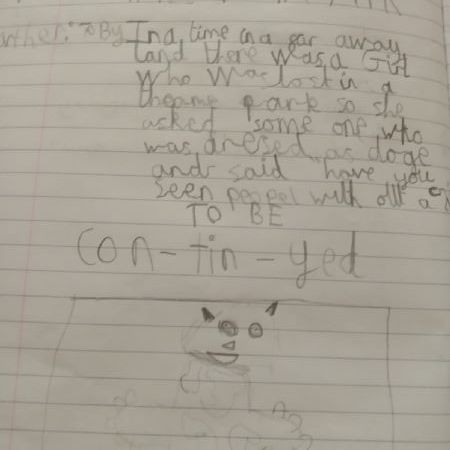 By In a time in a far away
land there was a Girl
who was lost in a
theame park so she
asked some one who
was dresed as doge
and said have you
seen peopel with out a
TO BE
Con-tin-yed